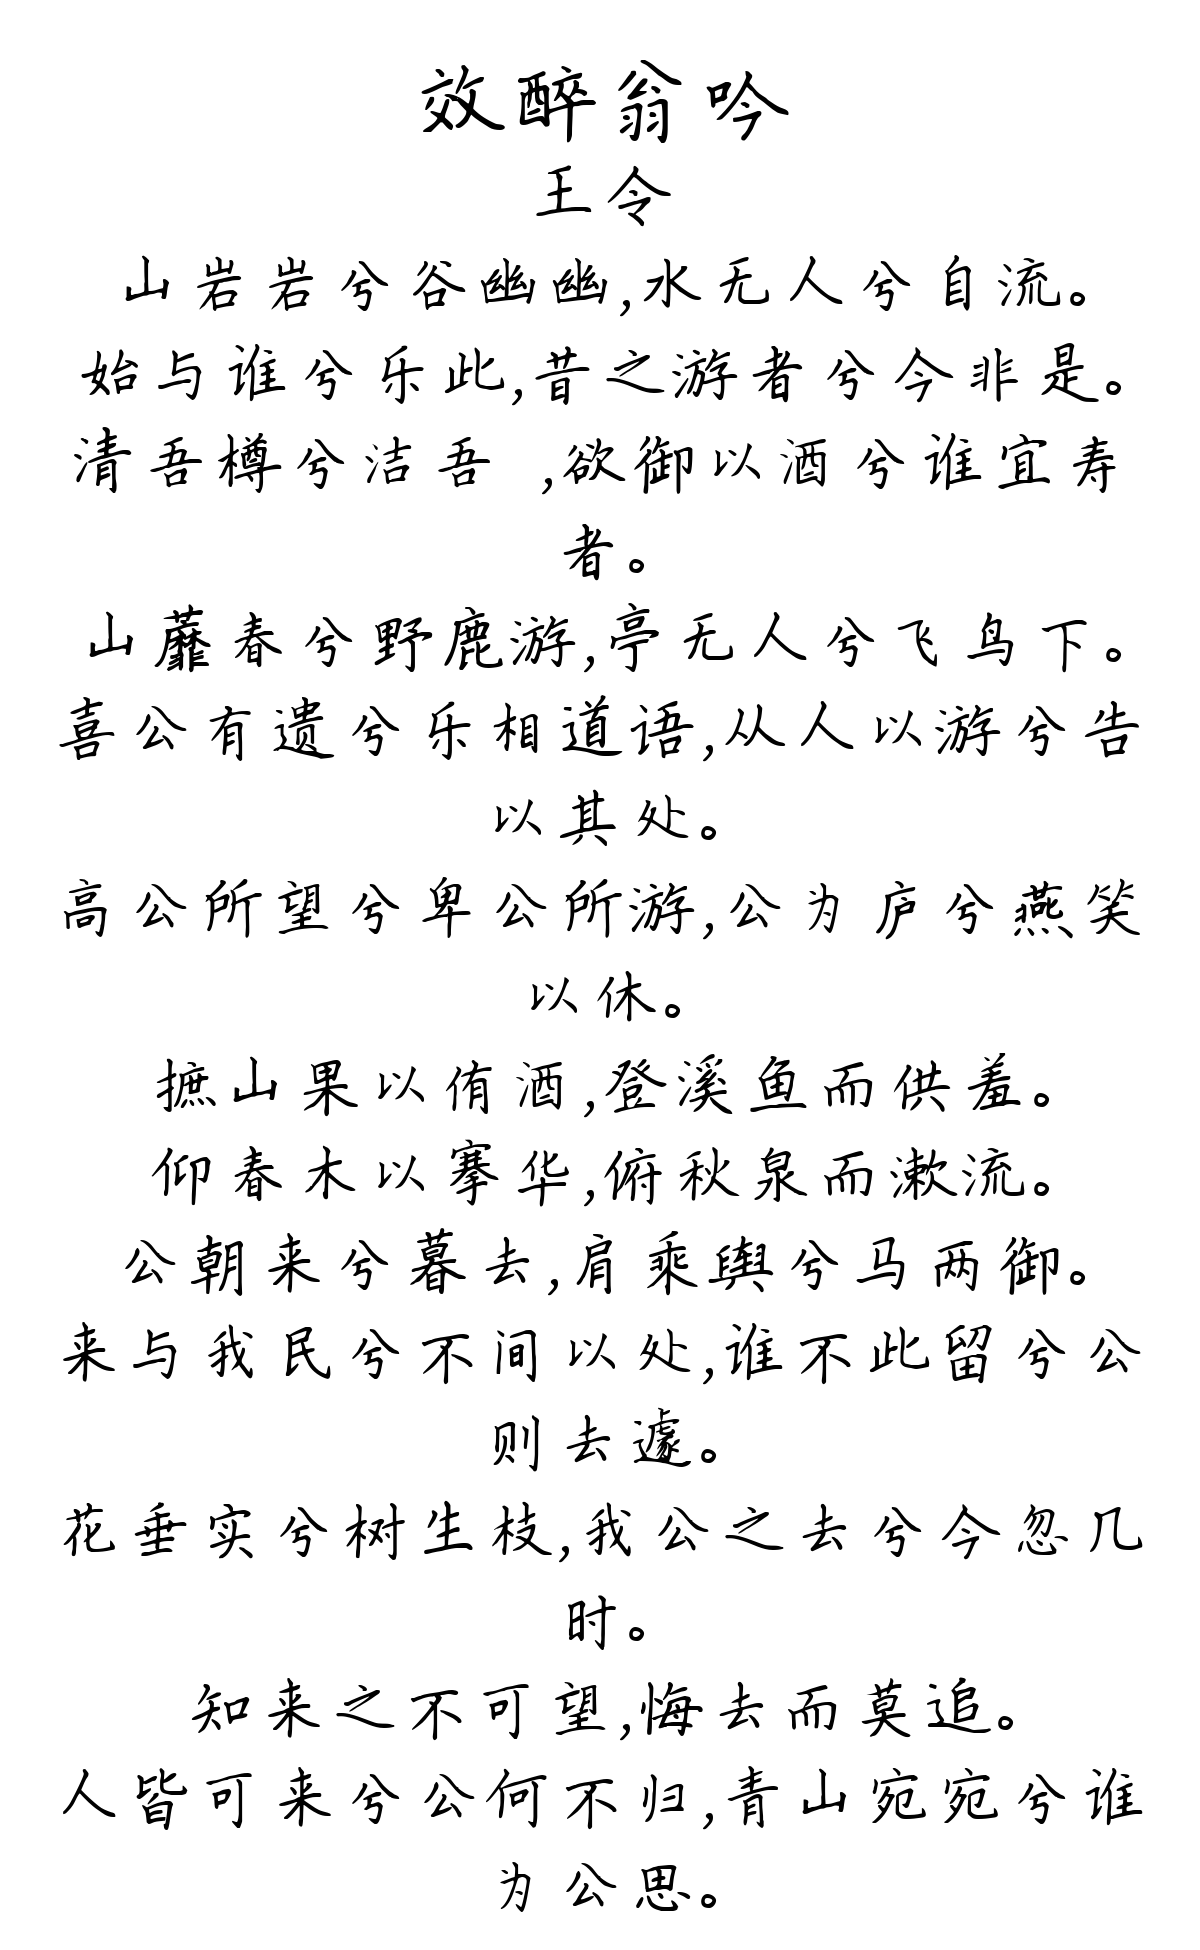 效醉翁吟
王令
山岩岩兮谷幽幽,水无人兮自流。
始与谁兮乐此,昔之游者兮今非是。
清吾樽兮洁吾 ,欲御以酒兮谁宜寿
者。
山蘼春兮野鹿游,亭无人兮飞鸟下。
喜公有遗兮乐相道语,从人以游兮告
以其处。
高公所望兮卑公所游,公为庐兮燕笑
以休。
摭山果以侑酒,登溪鱼而供羞。
仰春木以搴华,俯秋泉而漱流。
公朝来兮暮去,肩乘舆兮马两御。
来与我民兮不间以处,谁不此留兮公
则去遽。
花垂实兮树生枝,我公之去兮今忽几
时。
知来之不可望,悔去而莫追。
人皆可来兮公何不归,青山宛宛兮谁
为公思。